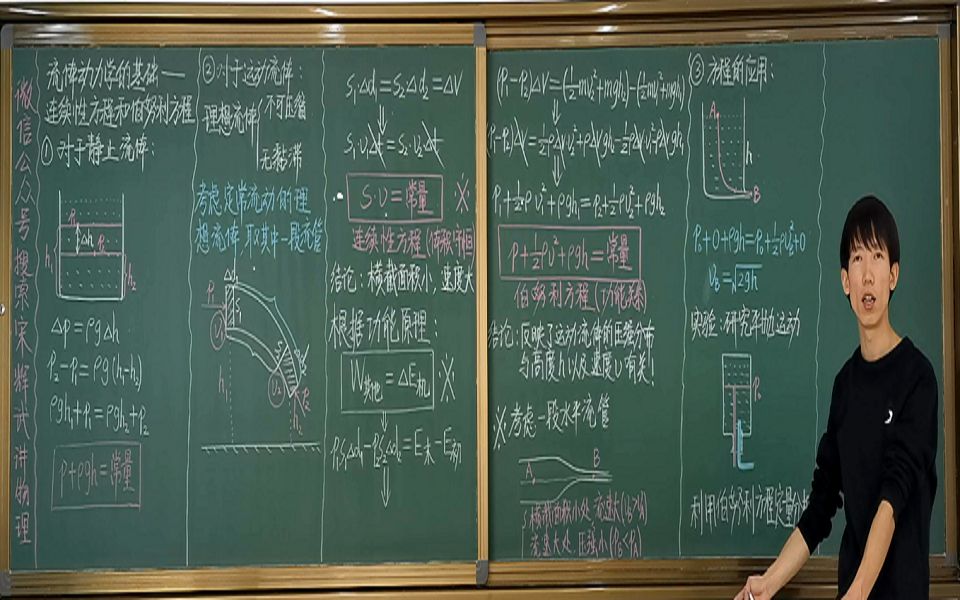 微信公众号搜索宋辉武讲物理
流体动力学的基础——
连续性方程和伯努利方程
① 对于静止流体：
P₁
Δh
P₂
h₁
h₂
ΔP=ρgΔh
P₂-P₁=ρg(h₁-h₂)
ρgh₁+P₁=ρgh₂+P₂
P+ρgh=常量
② 对于运动流体：
理想流体{不可压缩
无黏滞
考虑定常流动的理
想流体,取其中一段流管
P₁
S₁
υ₁
h₁
S₂
υ₂
P₂
h₂
S₁Δd₁=S₂Δd₂=ΔV
S₁υ₁Δt=S₂υ₂Δt
S·υ=常量 ※
连续性方程(体积守恒)
结论:横截面积小,速度大
根据功能原理:
W其他=ΔE机 ※
P₁S₁Δd₁-P₂S₂Δd₂=E末-E初
(P₁-P₂)ΔV=(½mυ₂²+mgh₂)-(½mυ₁²+mgh₁)
(P₁-P₂)ΔV=½ρΔVυ₂²+ρΔVgh₂-½ρΔVυ₁²-ρΔVgh₁
P₁+½ρυ₁²+ρgh₁=P₂+½ρυ₂²+ρgh₂
P+½ρυ²+ρgh=常量
伯努利方程(功能关系)
结论:反映了运动流体的压强分布
与高度h以及速度υ有关!
※考虑一段水平流管
A
B
横截面积小处,流速大(υB>υA)
流速大处,压强小(PB<PA)
③ 方程的应用:
A
h
B
P₀+0+ρgh=P₀+½ρυB²+0
υB=√2gh
实验:研究平抛运动
P₀
利用伯努利方程定量分析